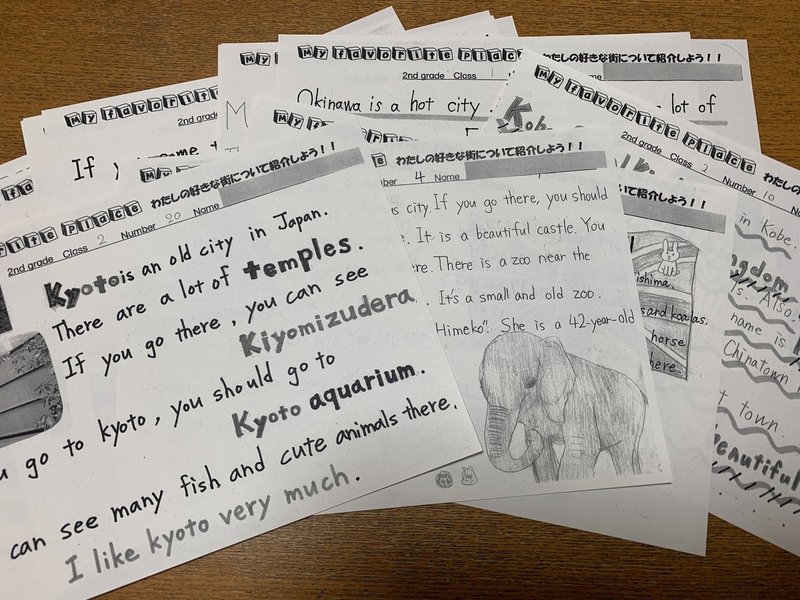 My favorite place わたしの好きな街について紹介しよう！！
2nd grade Class 2 Number 20 Name
Kyoto is an old city in Japan.
There are a lot of temples.
If you go there, you can see
Kiyomizudera
go to kyoto, you should go to
Kyoto aquarium.
can see many fish and cute animals there.
I like kyoto very much.
わたしの好きな街について紹介しよう！！
4 Name
city. If you go there, you should
It is a beautiful castle. You
There is a zoo near the
It's a small and old zoo.
Himeko". She is a 42-year-old
My favorite place
2nd grade Class
Okinawa is a hot city
わたしの好きな街について紹介しよう！！
lot of
My favorite
2nd grade
If
My
My favorite place わたしの
2nd grade Class 2 Number 10 Na
in Kobe.
Also,
name is
Chinatown
town.
Beautiful
紹介しよう！！
and koalas.
horse
here.